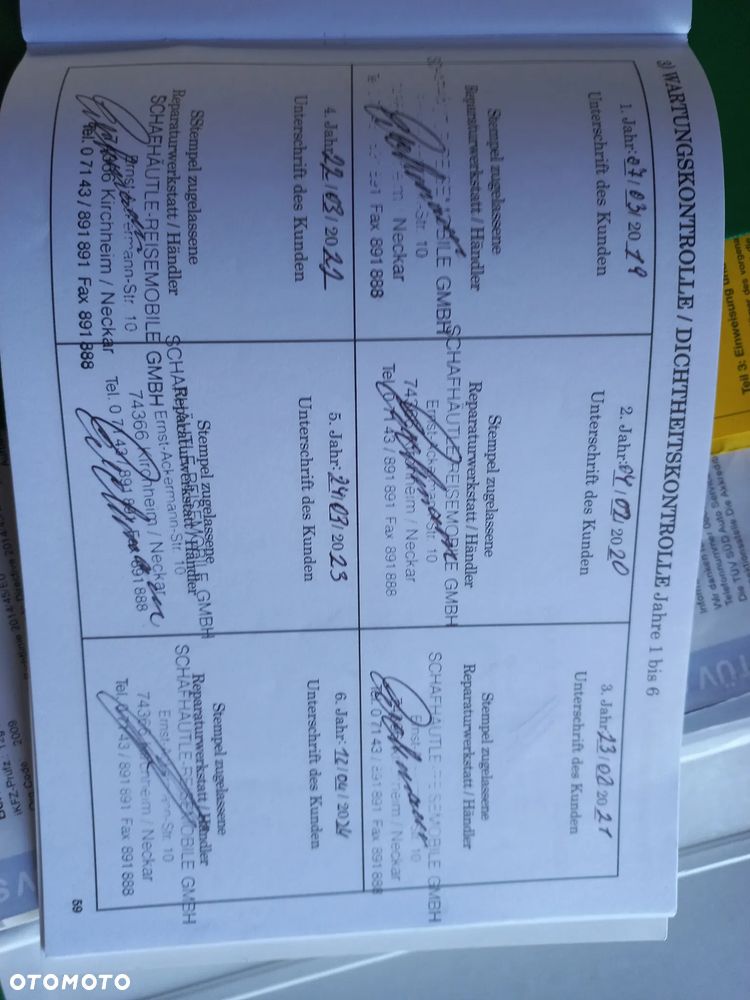 3) WARTUNGSKONTROLLE / DICHTHEITSKONTROLLE Jahre 1 bis 6
1. Jahr: 07/03/2019
Unterschrift des Kunden
Stempel zugelassene
Reparaturwerkstatt / Händler
BILE GMBH
Str. 10
Neckar
Fax 891 888
2. Jahr: 04/02/2020
Unterschrift des Kunden
Stempel zugelassene
Reparaturwerkstatt / Händler
SCHAFHÄUTLE-REISEMOBILE GMBH
Ernst-Ackermann-Str. 10
74366 Kirchheim / Neckar
Tel. 0 71 43 / 891 891 Fax 891 888
3. Jahr: 13/02/2021
Unterschrift des Kunden
Stempel zugelassene
Reparaturwerkstatt / Händler
SCHAFHÄUTLE-REISEMOBILE GMBH
Ernst
10
heim / Neckar
Tel. 0 71 43 / 891 891 Fax 891 888
4. Jahr: 22/03/2022
Unterschrift des Kunden
SStempel zugelassene
Reparaturwerkstatt / Händler
SCHAFHÄUTLE-REISEMOBILE GMBH
Ernst-Ackermann-Str. 10
74366 Kirchheim / Neckar
Tel. 0 71 43 / 891 891 Fax 891 888
5. Jahr: 24/03/2023
Unterschrift des Kunden
Stempel zugelassene
Reparaturwerkstatt / Händler
SCHAFHÄUTLE-REISEMOBILE GMBH
Ernst-Ackermann-Str. 10
74366 Kirchheim / Neckar
Tel. 0 71 43 / 891 891 Fax 891 888
6. Jahr: 12/04/2024
Unterschrift des Kunden
Stempel zugelassene
Reparaturwerkstatt / Händler
SCHAFHÄUTLE-REISEMOBILE GMBH
Ernst-Ackermann-Str. 10
74366 Kirchheim / Neckar
Tel. 0 71 43 / 891 891 Fax 891 888
59
Teil 3: Einweisung und
TÜV
OTOMOTO